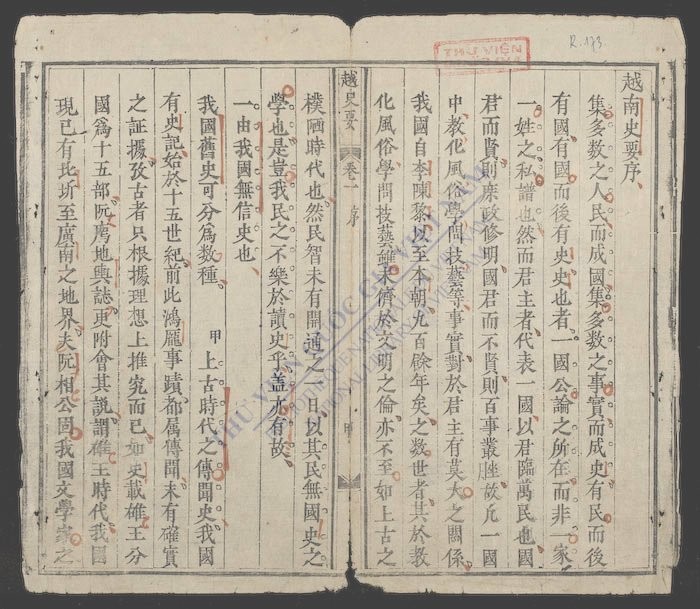 R.173
越南史要序
集多數之人民而成國集多數之事實而成史有民而後
有國有國而後有史史也者一國公論之所在而非一家
一姓之私譜也然而君主者代表一國以君臨萬民也國
君而賢則庶政修明國君而不賢則百事叢脞故凡一國
中教化風俗學問技藝等事實對於君主有莫大之關係
我國自李陳黎以至本朝九百餘年矣之数世者其於教
化風俗學問技藝雖未儕於文明之倫亦不至如上古之
越史要
卷一
序
甲
樸陋時代也然民智未有開通之一日以其民無國史之
學也是豈我民之不樂於讀史乎盖亦有故
一由我國無信史也
我國舊史可分爲数種
甲 上古時代之傳聞史我國
有史記始於十五世紀前此鴻厖事蹟都属傳聞未有確實
之証據攷古者只根據理想上推究而已如史載雄王分
國爲十五部阮廌地輿誌更附會其説謂雄王時代我國
現已有比圻至廣南之地界夫阮相公固我國文學家之
THƯ VIỆN QUỐC GIA VIỆT NAM